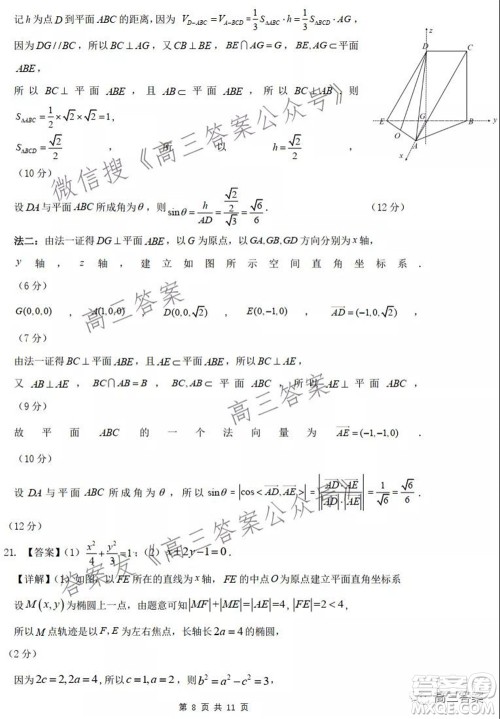 记 h 为点 D 到平面 ABC 的距离,因为 V_{D-ABC}=V_{A-BCD}=\frac{1}{3}S_{\Delta ABC}·h=\frac{1}{3}S_{\Delta BCD}·AG,
因为 DG//BC,所以 BC⊥AG,又 CB⊥BE,BE∩AG=G,BE,AG⊂平面
ABE,
所以 BC⊥平面 ABE,且 AB⊂平面 ABE,所以 BC⊥AB,则
S_{\Delta ABC}=\frac{1}{2}×\sqrt{2}×\sqrt{2}=1,
S_{\Delta BCD}=\frac{\sqrt{2}}{2} , 所 以 h=\frac{\sqrt{2}}{2} .
(10 分)
设 DA 与平面 ABC 所成角为 θ,则 sinθ=\frac{h}{AD}=\frac{\frac{\sqrt{2}}{2}}{\sqrt{3}}=\frac{\sqrt{6}}{6}. (12 分)
法二:由法一证得 DG⊥平面 ABE,以 G 为原点,以 GA,GB,GD 方向分别为 x 轴,
y 轴,z 轴,建立如图所示空间直角坐标系.
(6 分)
G(0,0,0) , A(1,0,0) , D(0,0,\sqrt{2}) , E(0,-1,0) , \overrightarrow{AD}=(-1,0,\sqrt{2}) ,
(7 分)
由法一证得 BC⊥平面 ABE,且 AE⊂平面 ABE,所以 BC⊥AE,
又 AB⊥AE,BC∩AB=B,BC,AB⊂平面 ABC,所以 AE⊥平面 ABC,
(9 分)
故 平 面 ABC 的 一 个 法 向 量 为 \overrightarrow{AE}=(-1,-1,0) .
(10 分)
设 DA 与平面 ABC 所成角为 θ,所以 sinθ=|cos<\overrightarrow{AD},\overrightarrow{AE}>|=\left|\frac{\overrightarrow{AD}·\overrightarrow{AE}}{|\overrightarrow{AD}|·|\overrightarrow{AE}|}\right|=\frac{1}{\sqrt{6}}=\frac{\sqrt{6}}{6}.
(12 分)
21. 【答案】(1) \frac{x^2}{4}+\frac{y^2}{3}=1;(2) x±2y-1=0.
【详解】(1)如图,以 FE 所在的直线为 x 轴,FE 的中点 O 为原点建立平面直角坐标系
设 M(x,y) 为椭圆上一点,由题意可知 |MF|+|ME|=|AE|=4,|FE|=2<4,
所以 M 点轨迹是以 F,E 为左右焦点,长轴长 2a=4 的椭圆,
(2 分)
因为 2c=2,2a=4,所以 c=1,a=2,则 b^2=a^2-c^2=3,
第 8 页 共 11 页
z
D
C
E
G
B
y
A
x
微信搜《高三答案公众号》
高三答案
高三答案
答案友《高三答案公众号》
高三答案